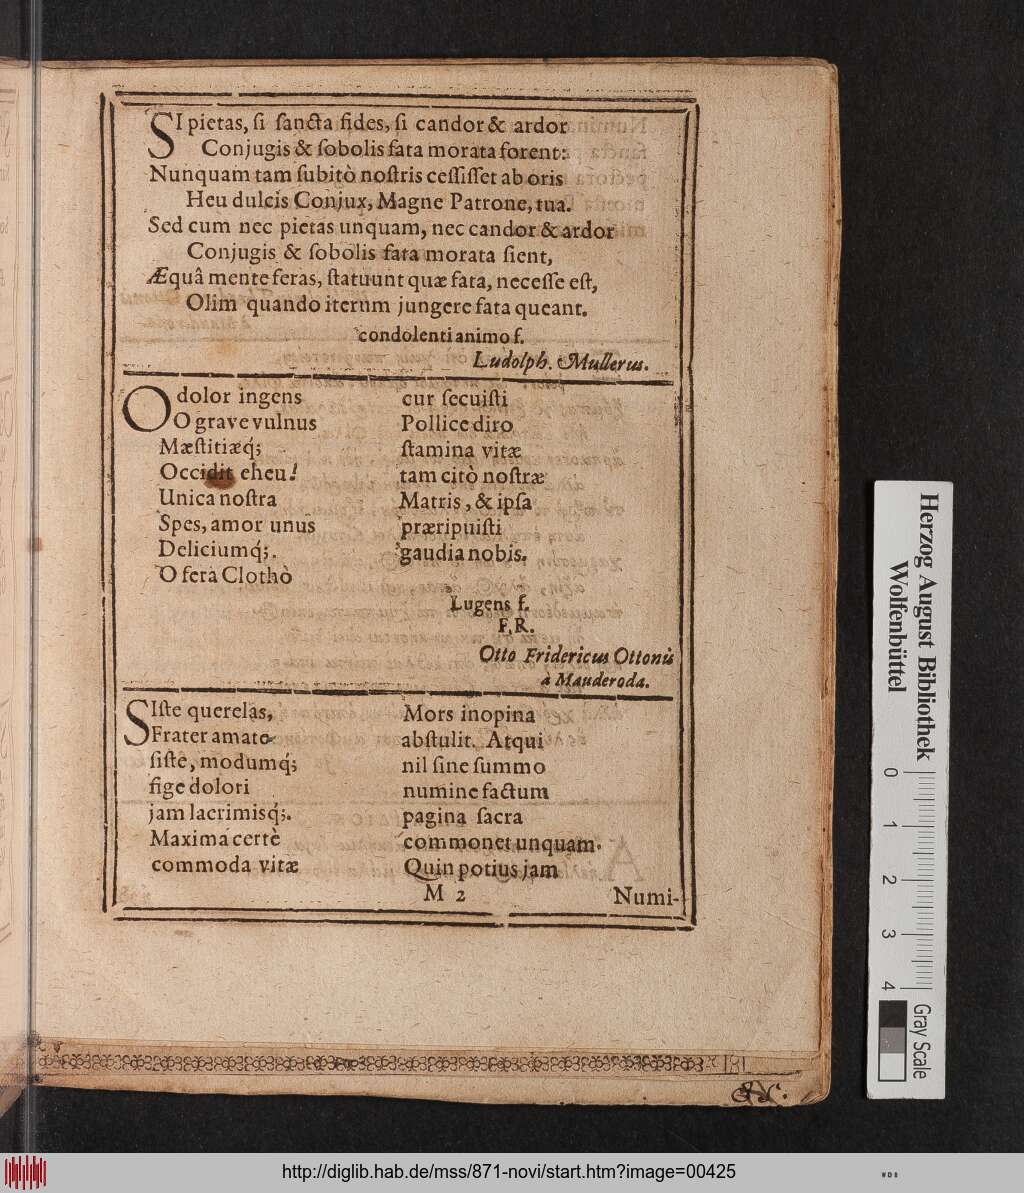 SI pietas, ſi ſancta fides, ſi candor & ardor
Conjugis & ſobolis fata morata forent:
Nunquam tam ſubitò noſtris ceſſiſſet ab oris
Heu dulcis Conjux, Magne Patrone, tua.
Sed cum nec pietas unquam, nec candor & ardor
Conjugis & ſobolis fata morata ſient,
Æquâ mente feras, ſtatuunt quæ fata, neceſſe eſt,
Olim quando iterum jungere fata queant.
condolenti animo f.
Ludolph. Mullerus.
O dolor ingens
O grave vulnus
Mæſtitiæq́;
Occidit eheu!
Unica noſtra
Spes, amor unus
Deliciumq́;.
O fera Clothò
cur ſecuiſti
Pollice diro
ſtamina vitæ
tam citò noſtræ
Matris, & ipſa
præripuiſti
gaudia nobis.
Lugens f.
F. R.
Otto Fridericus Ottonis
à Mauderoda.
SIſte querelas,
Frater amate
ſiſte, modumq́;
fige dolori
jam lacrimisq́;.
Maxima certè
commoda vitæ
Mors inopina
abſtulit. Atqui
nil ſine ſummo
numine factum
pagina ſacra
commonet unquam.
Quin potius jam
M 2
Numi-
Herzog August Bibliothek
Wolfenbüttel
0 1 2 3 4
Gray Scale
http://diglib.hab.de/mss/871-novi/start.htm?image=00425
WDB